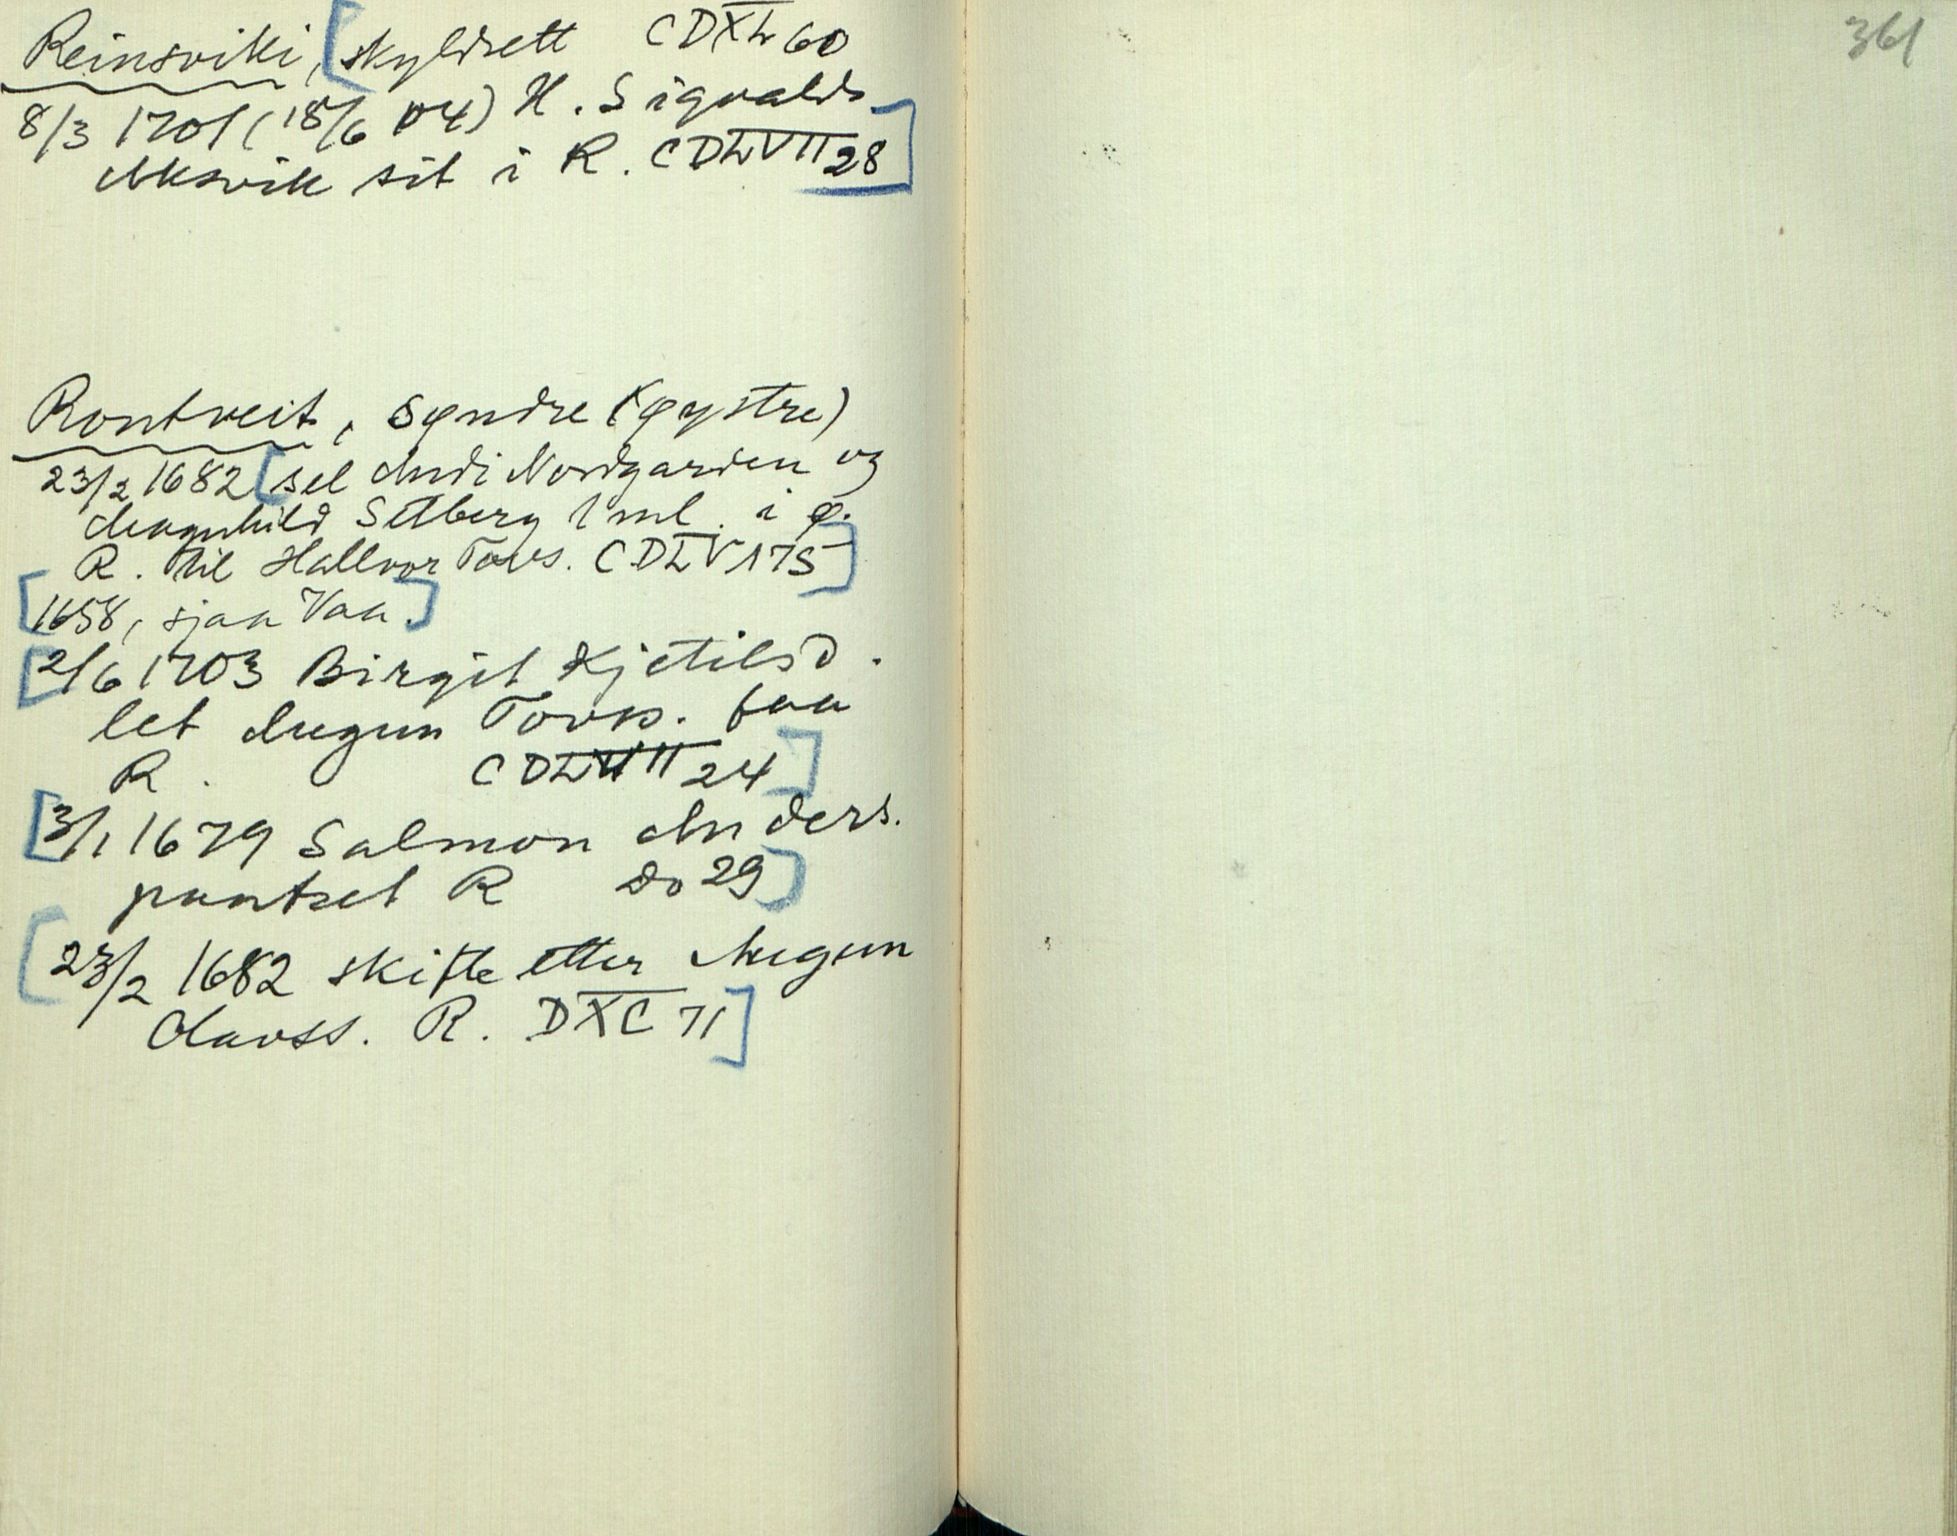 361
Reinsviki, [skyldsett CDXL 60
8/3 1701 (18/6 04) H. Sigvalds
Aksvik sit i R. CDLVII 28]
Rontveit, Syndre (øystre)
23/2 1682 [sel Andi Nordgarden og
Aagnhild Setberg 1 ml. i ø.
R. til Hallvor Tovs. CDLV 175]
[1658, sjaa Vaa.]
[2/6 1703 Birgit Kjetilsd.
let Augun Tovs. faa
R. CDLVII 24]
[3/1 1679 Salmon Anders.
pantset R Do 29]
[23/2 1682 skifte etter Augun
Olavss. R. DXC 71]